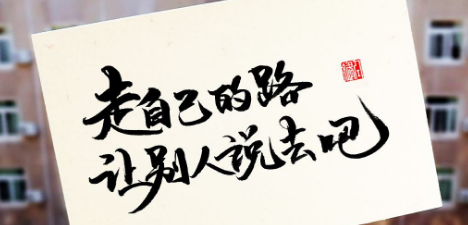 走自己的路
让别人说去吧